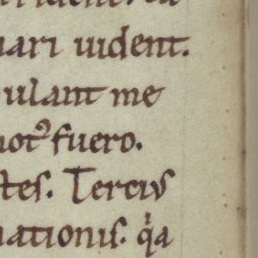 uari uident.
ulant me
not⁹ fuero.
tes. Tercius
nationis. q̇a